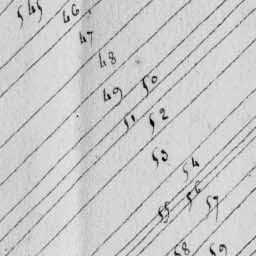 45
46
47
48
49 50
51 52
53
54
55 56 57
58 59